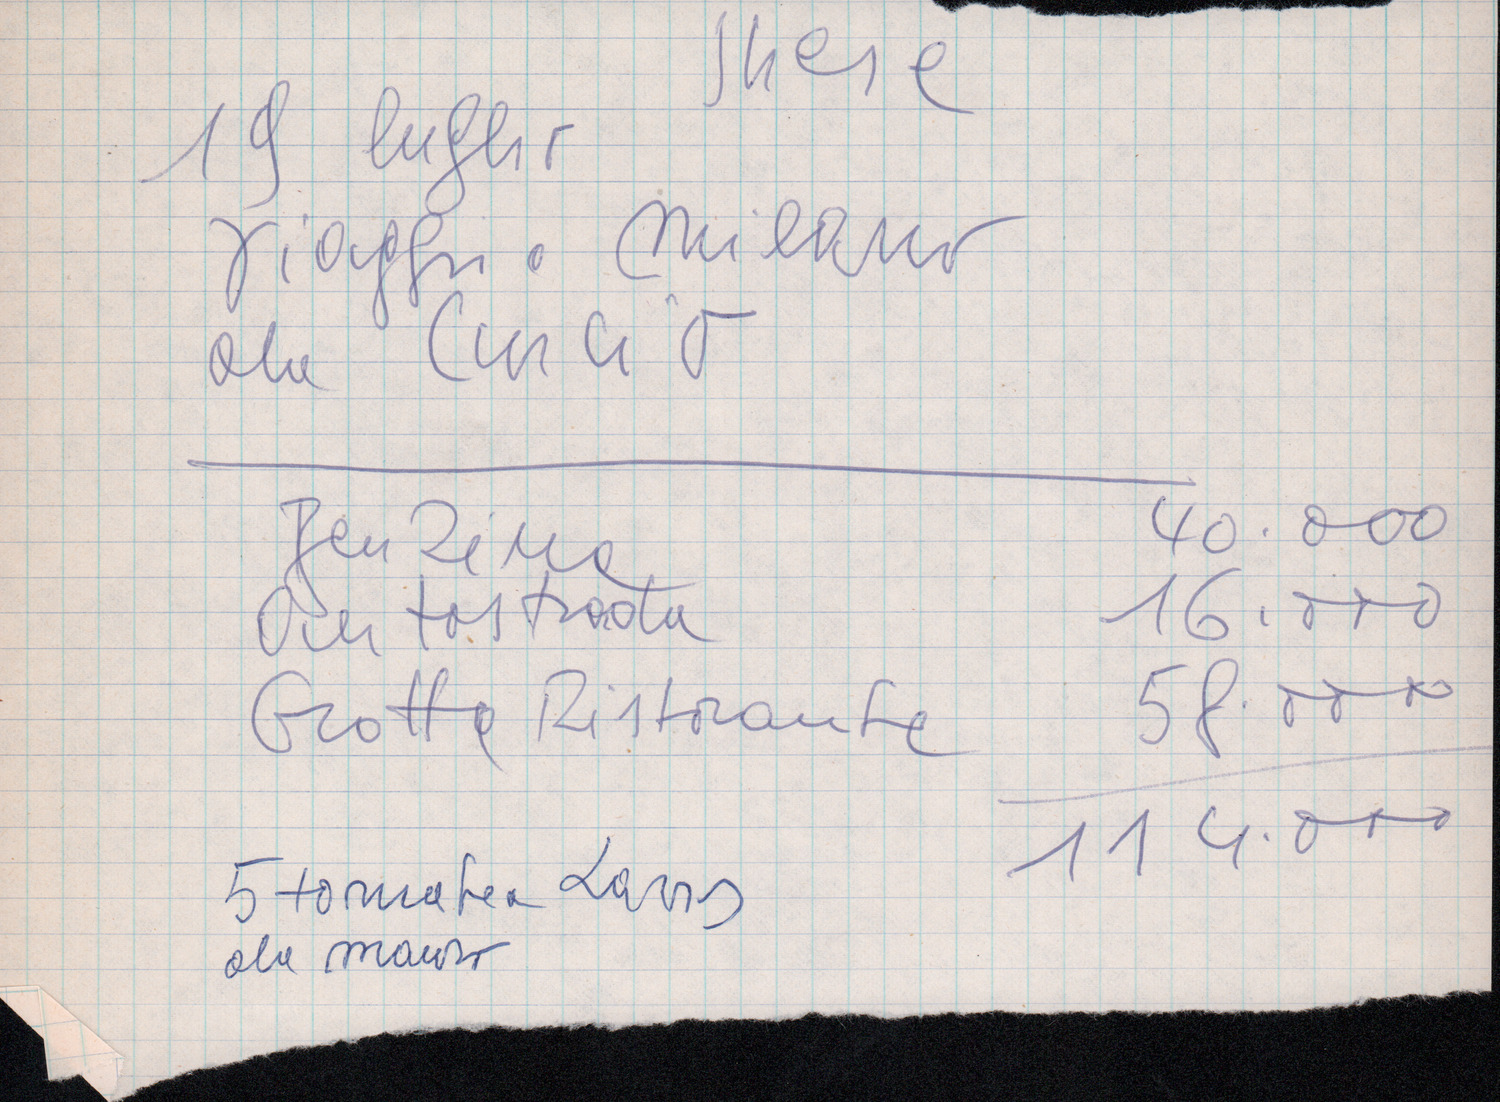 spese
19 luglio
viaggio a Milano
da Curcio
Benzina 40.000
Autostrada 16.000
Grotta Ristorante 58.000
114.000
5 tornatea Lavoro
da Mauro